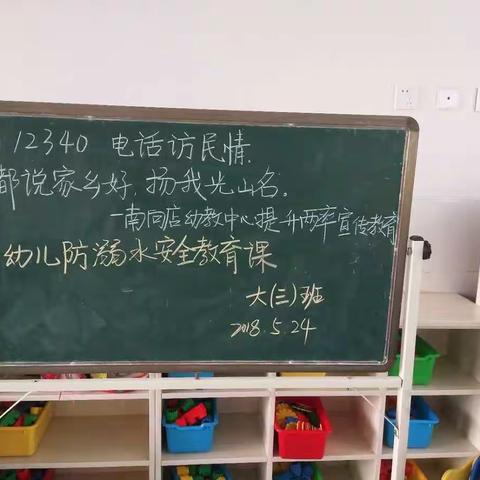 12340 电话访民情.
都说家乡好,扬我光山名.
一南向店幼教中心提升两率宣传教育
幼儿防溺水安全教育课
大(三)班
2018.5.24